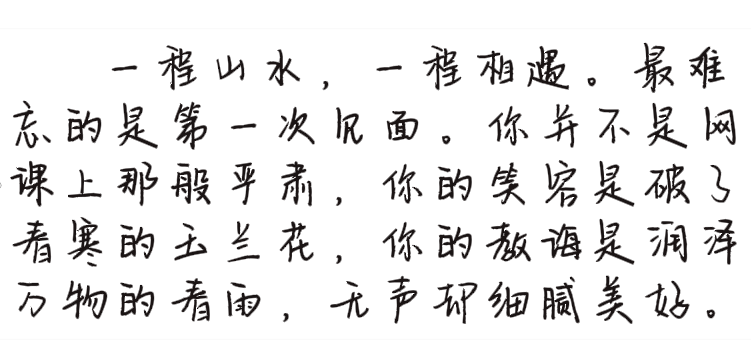 一程山水，一程相遇。最难
忘的是第一次见面。你并不是网
课上那般严肃，你的笑容是破了
春寒的玉兰花，你的教诲是润泽
万物的春雨，无声却细腻美好。